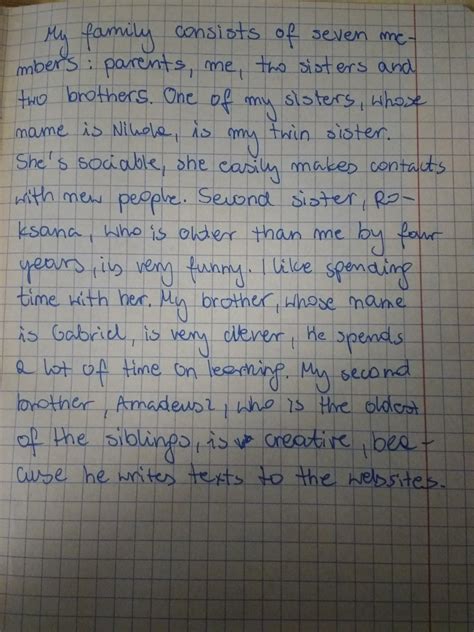 My family consists of seven me-
mbers: parents, me, two sisters and
two brothers. One of my sisters, whose
name is Nikola, is my twin sister.
She's sociable, she easily makes contacts
with new people. Second sister, Ro-
ksana, who is older than me by four
years, is very funny. I like spending
time with her. My brother, whose name
is Gabriel, is very clever, He spends
a lot of time on learning. My second
brother, Amadeusz, who is the oldest
of the siblings, is creative, bec-
ause he writes texts to the websites.